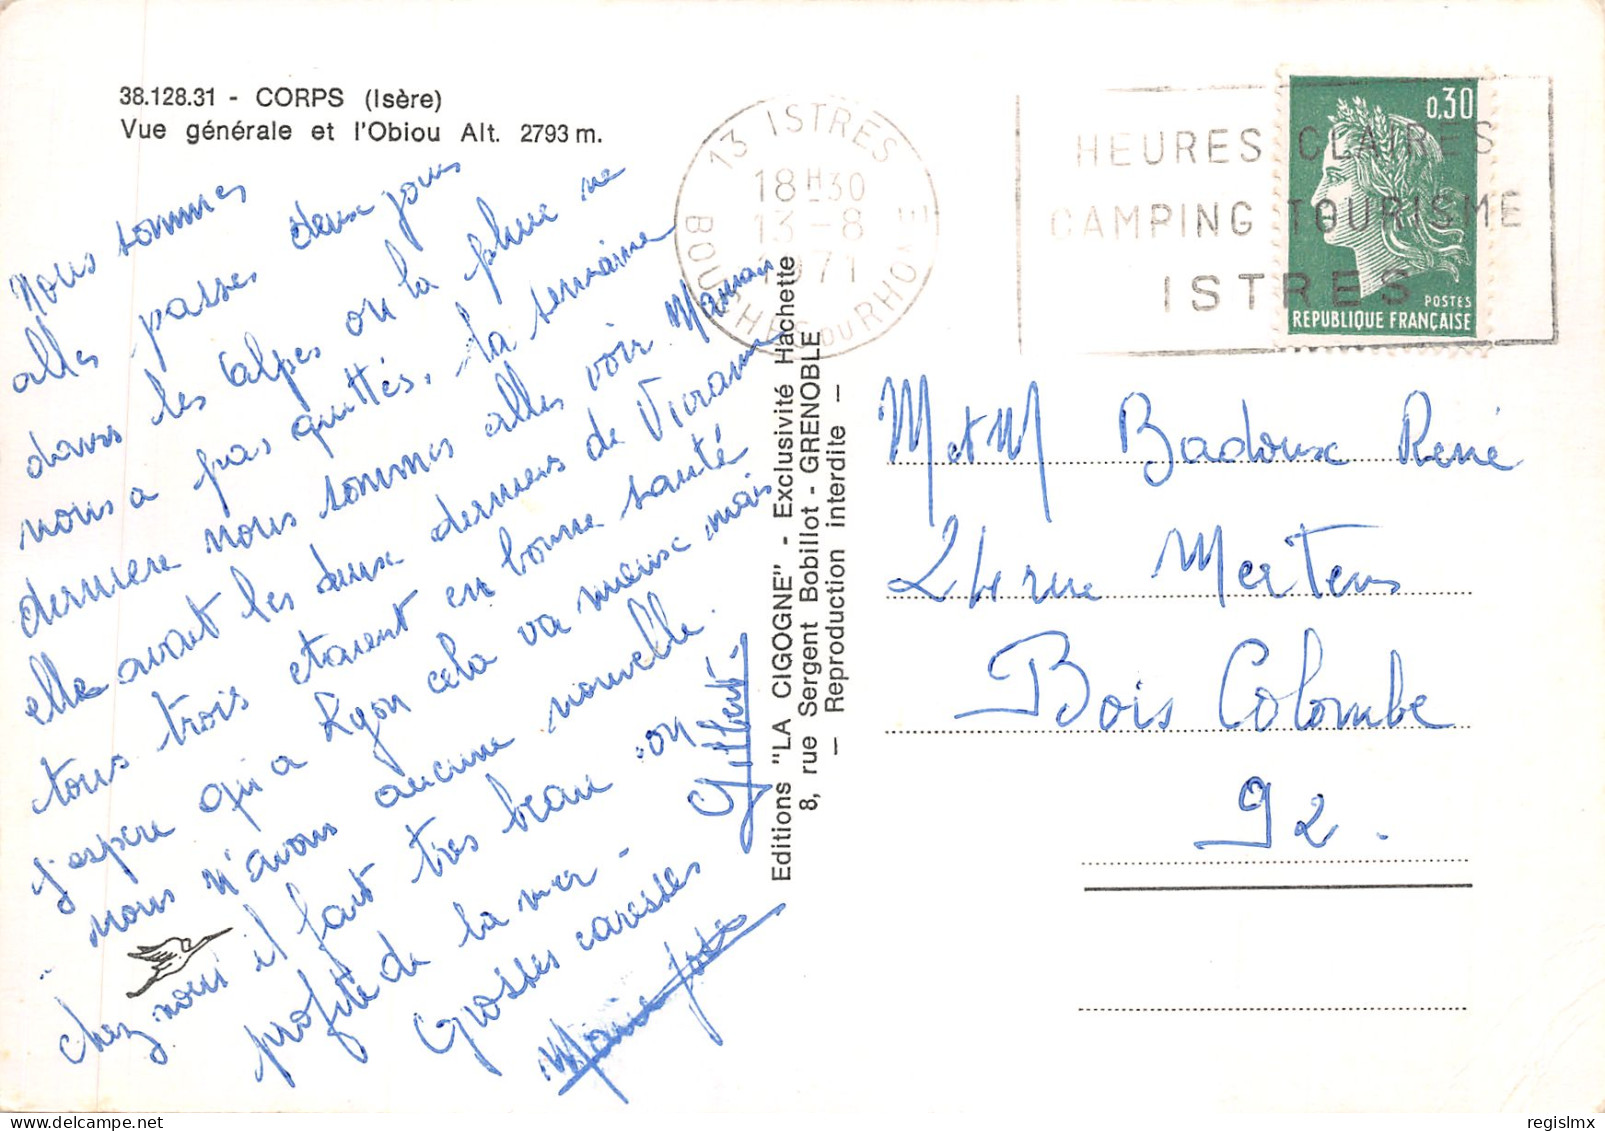 38.128.31 - CORPS (Isère)
Vue générale et l'Obiou Alt. 2793 m.
Nous sommes
alles passes deux jours
dans les Alpes ou la pluie ne
nous a pas quittés, la semaine
derniere nous sommes alles voir Maman
elle avait les deux derniers de Vivianne
tous trois etaient en bonne santé
j'espere qui a Lyon cela va mieux mais
nous n'avons aucune nouvelle.
chez nous il fait tres beau on
profite de la mer -
Grosses caresses
Gilbert.
Marie José
Editions "LA CIGOGNE" - Exclusivité Hachette
8, rue Sergent Bobillot - GRENOBLE
— Reproduction interdite —
13 ISTRES
18H30
13-8
1971
BOUCHES DU RHONE
HEURES CLAIRES
CAMPING TOURISME
ISTRES
0,30
POSTES
REPUBLIQUE FRANÇAISE
M et M Badoux René
24 rue Mertens
Bois Colombe
92.
regislmx